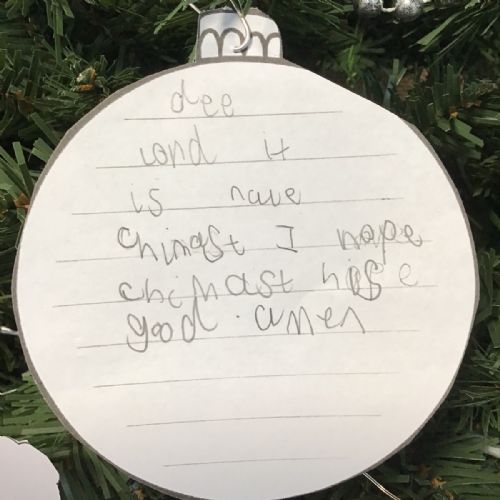 dee
lord it
is nave
chimast I nope
chimast hose
good. amen